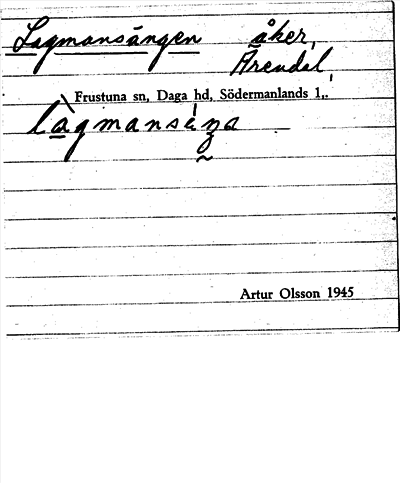 Lagmansängen åker,
Ärendal,
Frustuna sn, Daga hd, Södermanlands l.
Artur Olsson 1945